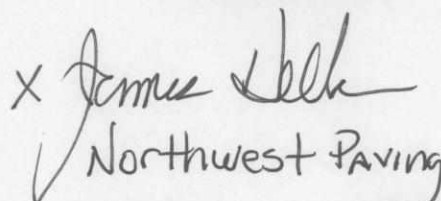 x James
Northwest Paving